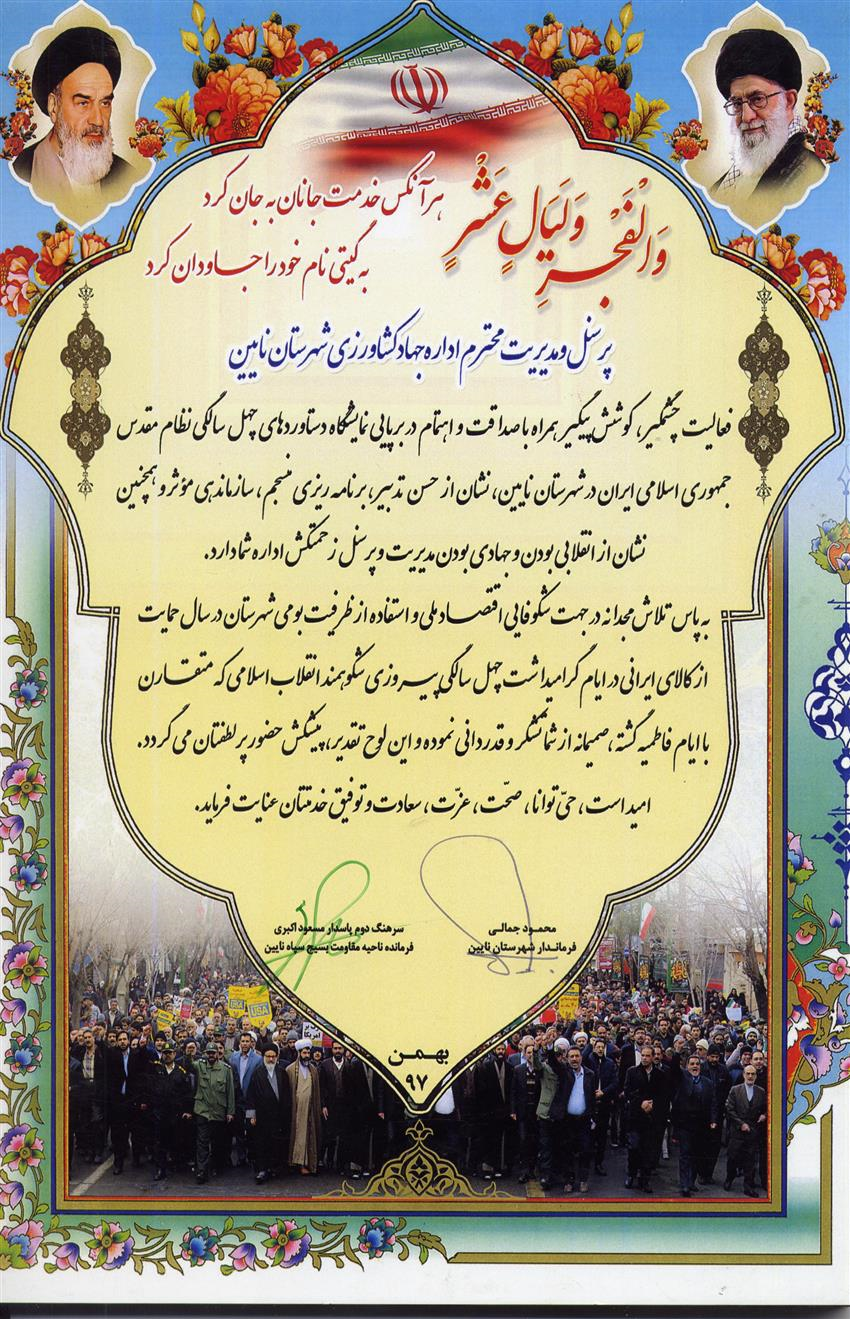 وَالْفَجْرِ وَلَيَالٍ عَشْرٍ
هر آنکس خدمت جانان به جان کرد
به گیتی نام خود را جاودان کرد
پرسنل و مدیریت محترم اداره جهاد کشاورزی شهرستان نایین
فعالیت چشمگیر، کوشش پیگیر همراه با صداقت و اهتمام در برپایی نمایشگاه دستاوردهای چهل سالگی نظام مقدس
جمهوری اسلامی ایران در شهرستان نایین، نشان از حسن تدبیر، برنامه ریزی منسجم، سازماندهی مؤثر و همچنین
نشان از انقلابی بودن و جهادی بودن مدیریت و پرسنل زحمتکش اداره شما دارد.
به پاس تلاش مجدانه در جهت شکوفایی اقتصاد ملی و استفاده از ظرفیت بومی شهرستان در سال حمایت
از کالای ایرانی در ایام گرامیداشت چهل سالگی پیروزی شکوهمند انقلاب اسلامی که متقارن
با ایام فاطمیه گشته، صمیمانه از شما تشکر و قدردانی نموده و این لوح تقدیر، پیشکش حضور پر لطفتان می گردد.
امید است، حیّ توانا، صحّت، عزّت، سعادت و توفیق خدمتتان عنایت فرماید.
محمود جمالی
فرماندار شهرستان نایین
سرهنگ دوم پاسدار مسعود اکبری
فرمانده ناحیه مقاومت بسیج سپاه نایین
USA
USA
بهمن
۹۷